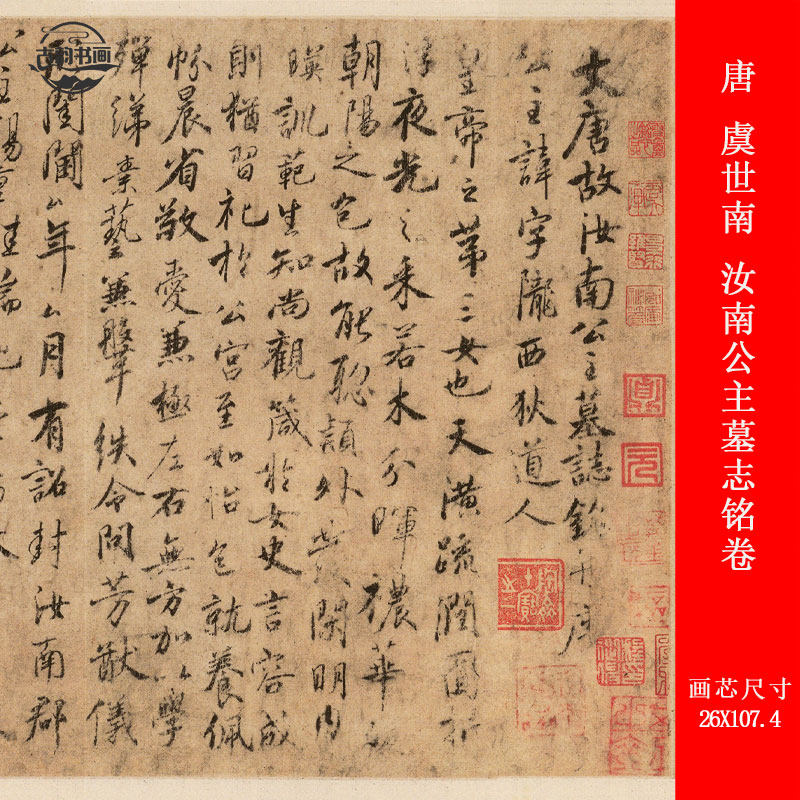 古韵书画
唐 虞世南 汝南公主墓志铭卷
画芯尺寸
26X107.4
大唐故汝南公主墓誌銘并序
公主諱字隴西狄道人
皇帝之第三女也天潢疏潤圓折
浮夜光之采若木分暉穠華
朝陽之色故能聡穎外發閑明内
暎訓範生知尚觀箴於女史言容成
則猶習礼於公宮至如怡色就養佩
帉晨省敬愛兼極左右無方加以學
殫綈素藝兼鞶紩令問芳猷儀
形閨閫厶年厶月有詔封汝南郡
公主錫重珪瑞